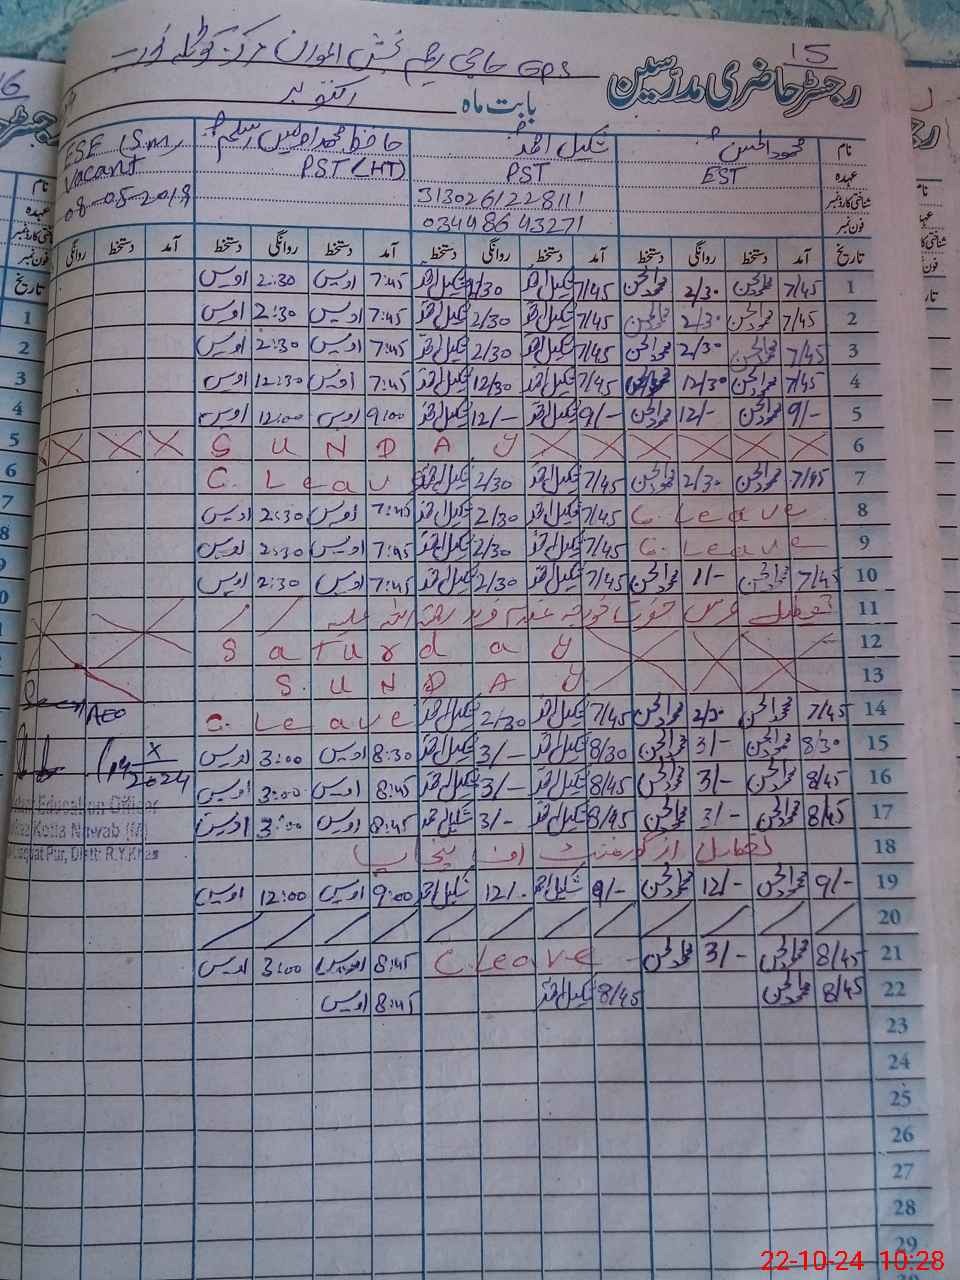 15
رجسٹر حاضری مدرسین
GPS حاجی رحیم بخش
بابت ماہ اکتوبر
نام محمود الحسن شکیل احمد حافظ محمد اویس ESE (S.M)
عہدہ EST PST PST (HT) Vacant
شناختی کارڈ نمبر 3130261228111 08-05-2018
فون نمبر 03498643271
تاریخ آمد دستخط روانگی دستخط آمد دستخط روانگی دستخط آمد دستخط روانگی دستخط آمد دستخط روانگی
1 7/45 محمود الحسن 2/30 محمود الحسن 7/45 شکیل احمد 2/30 شکیل احمد 7:45 اویس 2:30 اویس
2 7/45 محمود الحسن 2/30 محمود الحسن 7/45 شکیل احمد 2/30 شکیل احمد 7:45 اویس 2:30 اویس
3 7/45 محمود الحسن 2/30 محمود الحسن 7/45 شکیل احمد 2/30 شکیل احمد 7:45 اویس 2:30 اویس
4 7/45 محمود الحسن 12/30 محمود الحسن 7/45 شکیل احمد 12/30 شکیل احمد 7:45 اویس 12:30 اویس
5 9/- محمود الحسن 12/- محمود الحسن 9/- شکیل احمد 12/- شکیل احمد 9:00 اویس 12:00 اویس
6 X X X S U N D A Y X X X X X X
7 7/45 محمود الحسن 2/30 محمود الحسن 7/45 شکیل احمد 2/30 شکیل احمد C. Leav
8 C. Leave 7/45 شکیل احمد 2/30 شکیل احمد 7:45 اویس 2:30 اویس
9 C. Leave 7/45 شکیل احمد 2/30 شکیل احمد 7:45 اویس 2:30 اویس
10 7/45 محمود الحسن 1/- محمود الحسن 7/45 شکیل احمد 2/30 شکیل احمد 7:45 اویس 2:30 اویس
11 تعطیل عرس حضرت خواجہ غلام فرید رحمۃ اللہ علیہ
12 S a t u r d a y
13 S U N D A Y
14 7/45 محمود الحسن 2/30 محمود الحسن 7/45 شکیل احمد 2/30 شکیل احمد C. Leave AEO
15 8/30 محمود الحسن 3/- محمود الحسن 8/30 شکیل احمد 3/- شکیل احمد 8:30 اویس 3:00 اویس
16 8/45 محمود الحسن 3/- محمود الحسن 8/45 شکیل احمد 3/- شکیل احمد 8:45 اویس 3:00 اویس 2024
17 8/45 محمود الحسن 3/- محمود الحسن 8/45 شکیل احمد 3/- شکیل احمد 8:45 اویس 3:00 اویس
Education Officer
Kotla Nawab (M)
Liaqat Pur, Distt: R.Y.Khan
18 تعطیل از گورنمنٹ آف پنجاب
19 9/- محمود الحسن 12/- محمود الحسن 9/- شکیل احمد 12/- شکیل احمد 9:00 اویس 12:00 اویس
20
21 8/45 محمود الحسن 3/- محمود الحسن C. Leave 8:45 اویس 3:00 اویس
22 8/45 محمود الحسن 8/45 شکیل احمد 8:45 اویس
23
24
25
26
27
28
29
22-10-24 10:28